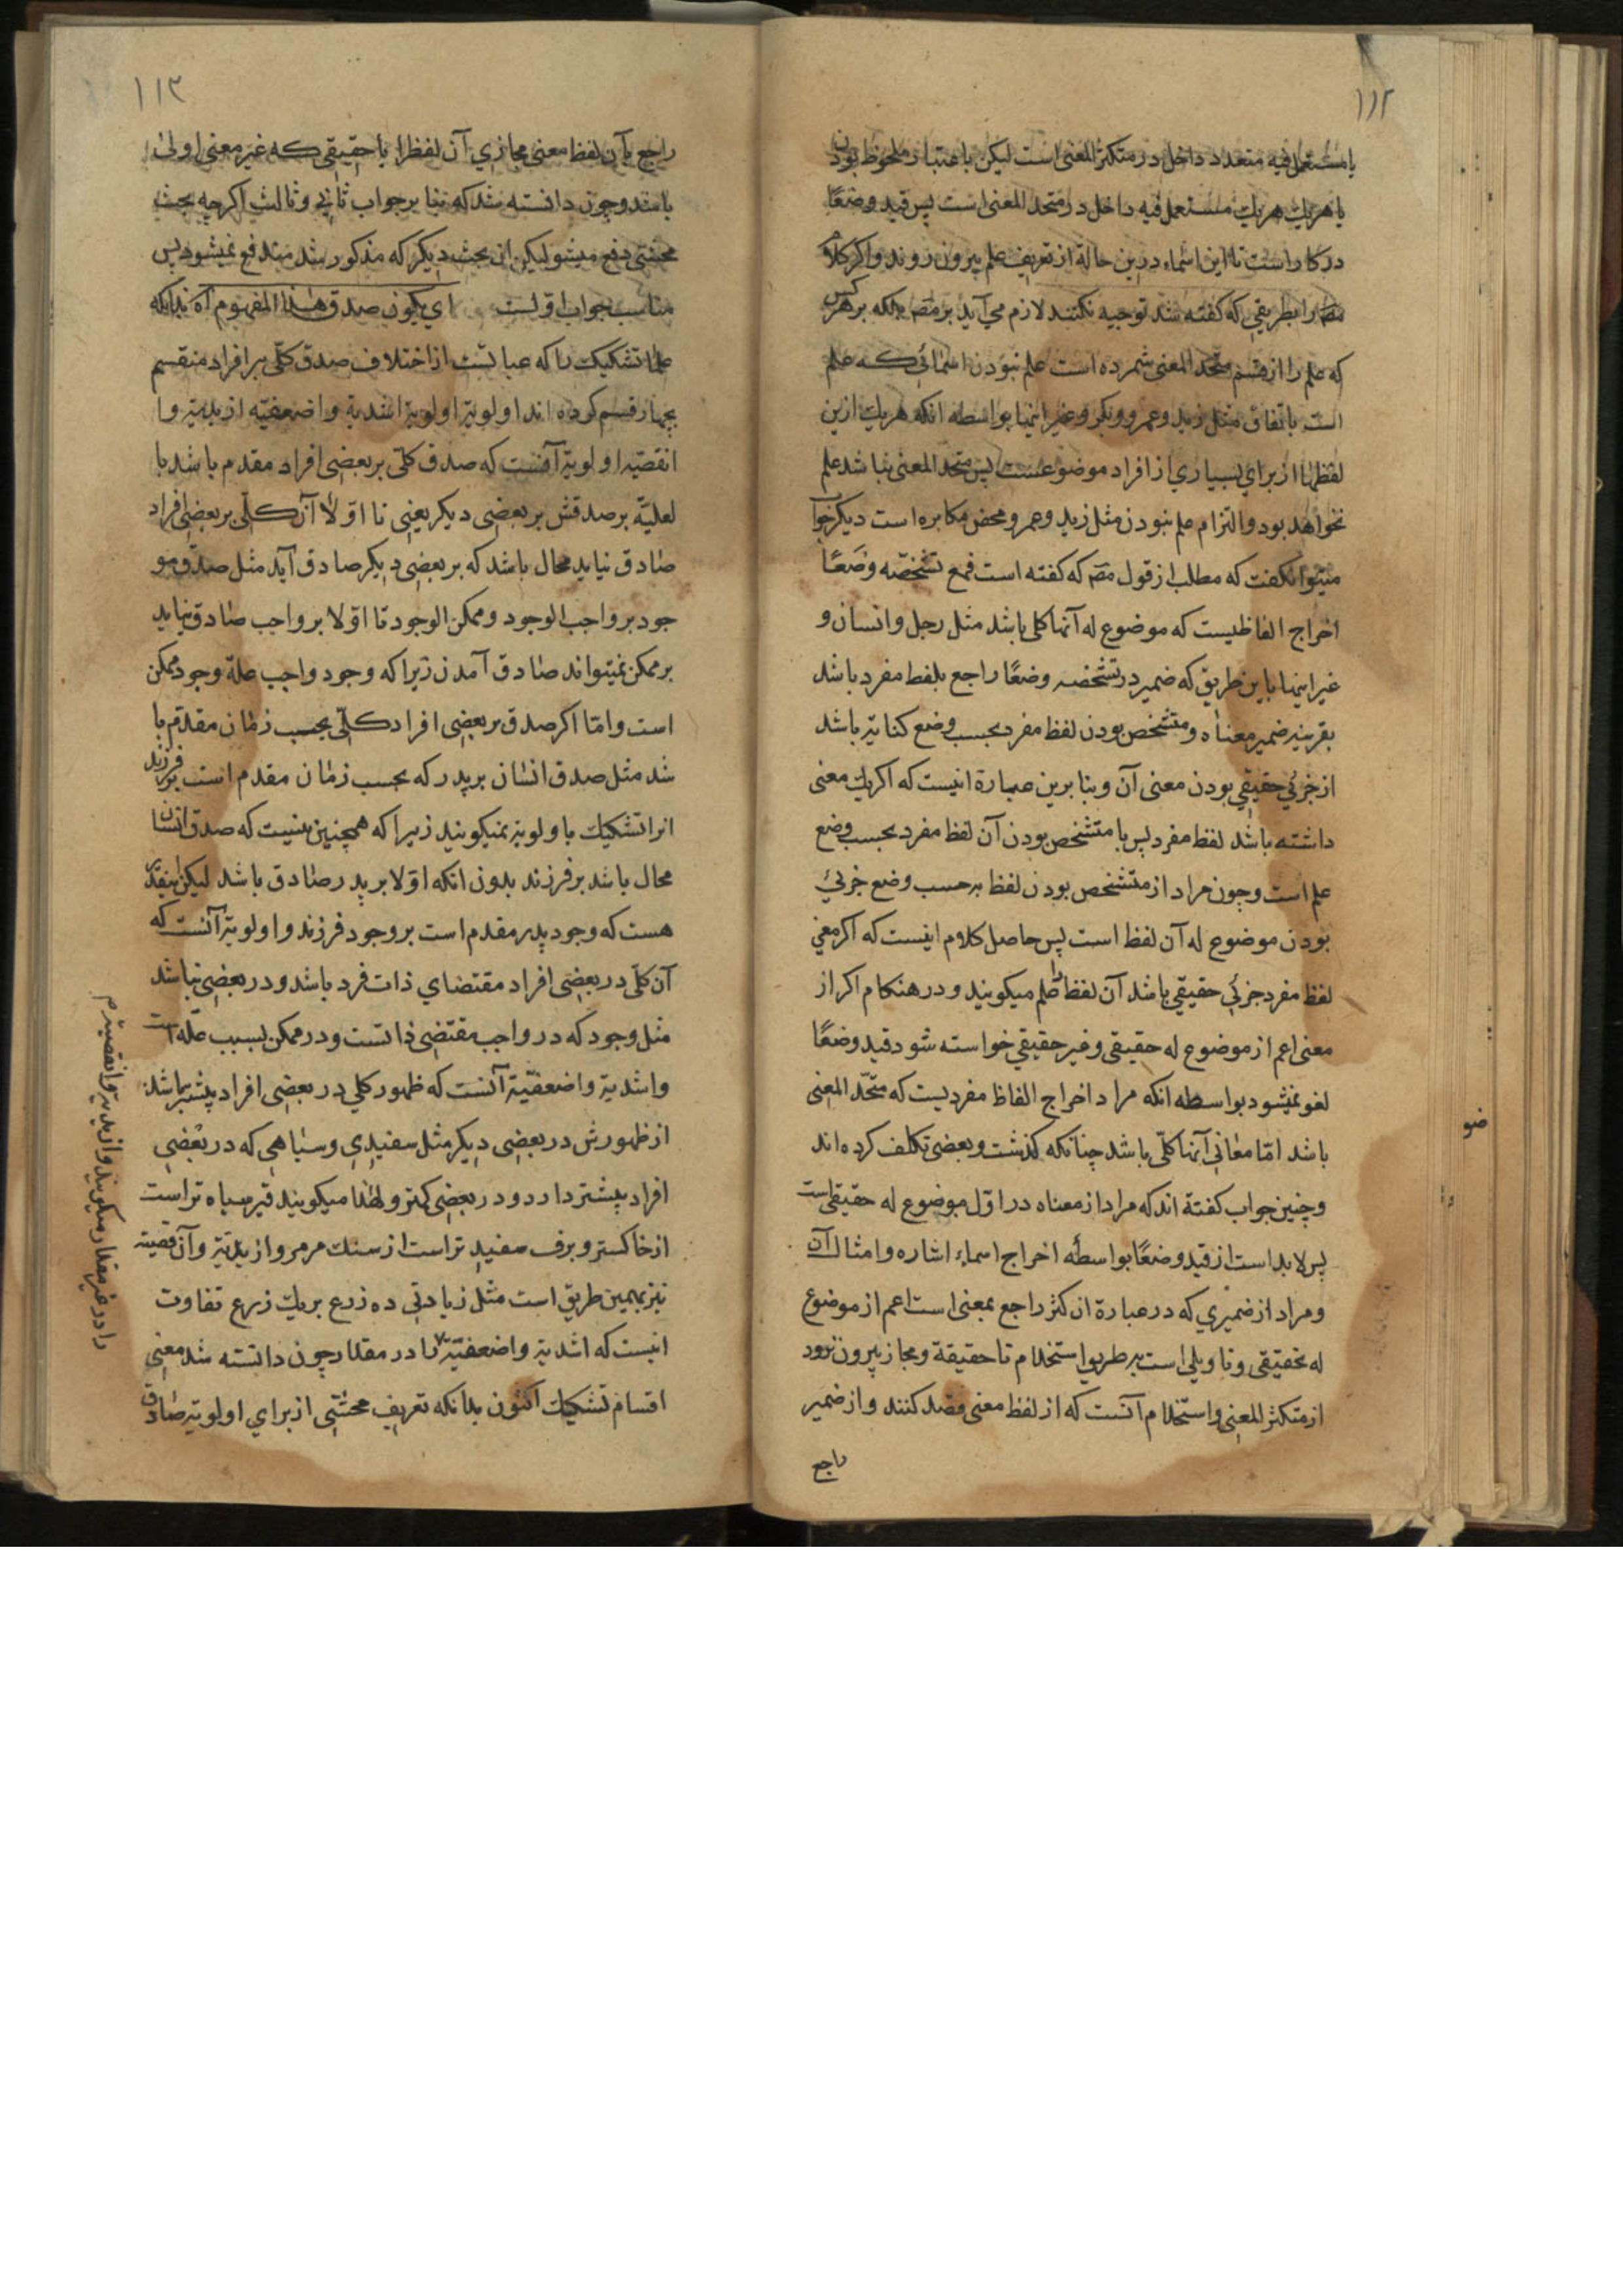 ۱۱۲
یا مستعمل فیه متعدد داخل در متکثر المعنی است لیکن باعتبار ملحوظ بودن
یا هریک هریک مستعمل فیه داخل در متحد المعنی است پس قید وضعًا
در کار است تا این اسماء درین حالة از تعریف علم بیرون روند و اکر کلام
مصَ را بطریقی که کفته شد توجیه نکنند لازم می آید بر مصَ بلکه بر هر کس
که علم را از قسم متّحد المعنی شمرده است علم نبودن اسمائی که علم
است باتفاق مثل زید و عمرو و بکر و غیر اینها بواسطه انکه هریک ازین
لفظها از برای بسیاری از افراد موضوعست پس متحد المعنی نباشد علم
نخواهد بود و التزام علم نبودن مثل زید و عمرو محض مکابره است دیکر جواب
میتوان کفت که مطلب از قول مصَ که کفته است فمع تشخّصه وضعًا
اخراج الفاظیست که موضوع له آنها کلی باشد مثل رجل و انسان و
غیر اینها باین طریق که ضمیر در تشخصه وضعًا راجع بلفظ مفرد باشد
بقرینه ضمیر معناه و متشخص بودن لفظ مفرد بحسب وضع کنایة باشد
از جزئی حقیقی بودن معنی آن و بنا برین عبارة اینست که اکر یک معنی
داشته باشد لفظ مفرد پس با متشخص بودن آن لفظ مفرد بحسب وضع
علم است و چون مراد از متشخص بودن لفظ بر حسب وضع جزئی
بودن موضوع له آن لفظ است پس حاصل کلام اینست که اکر معنی
لفظ مفرد جزئی حقیقی باشد آن لفظ را علم میکویند و در هنکام اکر از
معنی اعم از موضوع له حقیقی و غیر حقیقی خواسته شود قید وضعًا
لغو نمیشود بواسطه انکه مراد اخراج الفاظ مفردیست که متّحد المعنی
باشد امّا معانی آنها کلّی باشد چنانکه کذشت و بعضی تکلف کرده اند
و چنین جواب کفتة اند که مراد از معناه در اوّل موضوع له حقیقی است
پس لابد است از قید وضعًا بواسطه اخراج اسماء اشاره و امثال آن
و مراد از ضمیری که در عبارة ان کثر راجع بمعنی است اعم از موضوع
له تحقیقی و تاویلی است بر طریق استخدام تا حقیقة و مجاز بیرون نرود
از متکثر المعنی و استخدام آنست که از لفظ معنی قصد کنند و از ضمیر
راجع
ضو
۱۱۳
راجع بآن لفظ معنی مجازی آن لفظ را یا حقیقی که غیر معنی اولی
باشد و چون دانسته شد که بنا بر جواب ثانی و ثالث اکر چه بحث
محشّی دفع میشود لیکن ان بحث دیکر که مذکور شد مندفع نمیشود پس
مناسب جواب اوّلست ای یکون صدق هذا المفهوم اه بدانکه
علما تشکیک را که عبارتست از اختلاف صدق کلّی بر افراد منقسم
بچهار قسم کرده اند اولویة و اولویة اشدیة و اضعفیّه ازیدیّة و ا
انقصیّه اولویة آنست که صدق کلّی بر بعضی افراد مقدم باشد با
لعلیّه بر صدقش بر بعضی دیکر یعنی تا اوّلا آن کلّی بر بعضی افراد
صادق نیاید محال باشد که بر بعضی دیکر صادق آید مثل صدق مو
جود بر واجب الوجود و ممکن الوجود تا اوّلا بر واجب صادق نیاید
بر ممکن نمیتواند صادق آمدن زیرا که وجود واجب علّة وجود ممکن
است و امّا اکر صدق بر بعضی افراد کلّی بحسب زمان مقدّم با
شد مثل صدق انسان بر پدر که بحسب زمان مقدم است بر فرزند
انرا تشکیک باولویة نمیکویند زیرا که همچنین نیست که صدق انسان
محال باشد بر فرزند بدون انکه اوّلا بر پدر صادق باشد لیکن اینقدر
هست که وجود پدر مقدم است بر وجود فرزند و اولویة آنست که
آن کلّی در بعضی افراد مقتضای ذات فرد باشد و در بعضی نباشد
مثل وجود که در واجب مقتضی ذاتست و در ممکن بسبب علّة است
و اشدیة و اضعفیّة آنست که ظهور کلی در بعضی افراد بیشتر باشد
از ظهورش در بعضی دیکر مثل سفیدی و سیاهی که در بعضی
افراد بیشتر دارد و در بعضی کمتر و لهٰذا میکویند قیر سیاه تر است
از خاکستر و برف سفید تر است از سنک مرمر و ازیدیّة و انقصیّة
نیز بهمین طریق است مثل زیادتی ده زرع بر یک زرع تفاوت
اینست که اشدیة و اضعفیّة را در مقدار چون دانسته شد معنی
اقسام تشکیک اکنون بدانکه تعریف محشّی از برای اولویة صادق
را در غیر مقدار میکویند و ازیدیة و انقصیّة م